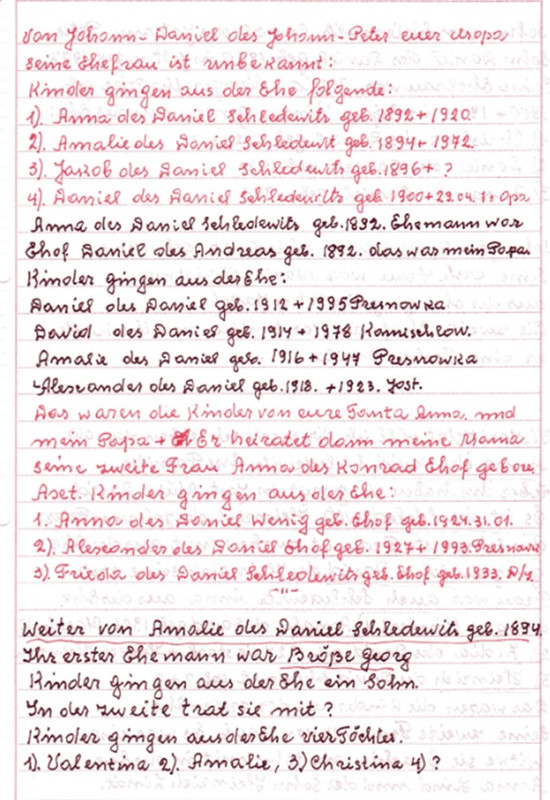 Von Johann-Daniel des Johann-Peter euer Uropa
seine Ehefrau ist unbekannt:
Kinder gingen aus der Ehe folgende:
1). Anna des Daniel Schledewits geb. 1892 + 1920.
2). Amalie des Daniel Schledewit geb. 1894 + 1972.
3). Jakob des Daniel Schledewits geb. 1896 + ?
4). Daniel des Daniel Schledewits geb 1900 + 29.04. Opa
Anna des Daniel Schledewits geb. 1892. Ehemann war
Ehof Daniel des Andreas geb. 1892. das war mein Papa.
Kinder gingen aus der Ehe:
Daniel des Daniel geb. 1912 + 1995 Presnowka
David des Daniel geb. 1914 + 1978 Kamischlow.
Amalie des Daniel geb. 1916 + 1947 Presnowka
Alexander des Daniel geb. 1918. + 1923. Jost.
Das waren die Kinder von eure Tanta Anna. und
mein Papa + Er heiratet dann meine Mama
seine zweite Frau Anna des Konrad Ehof gebore
Aset. Kinder gingen aus des Ehe:
1. Anna des Daniel Wenig geb. Ehof geb. 1924. 31. 01.
2). Alexander des Daniel Ehof geb. 1927 + 1993. Presnowk
3). Frieda des Daniel Schledewits geb. Ehof geb. 1933.
-"-
Weiter von Amalie des Daniel Schledewits geb. 1894.
Ihr erster Ehemann war Bröße Georg
Kinder gingen aus der Ehe ein Sohn.
In des zweite trat sie mit ?
Kinder gingen aus der Ehe vier Töchter.
1). Valentina 2). Amalie, 3.) Christina 4) ?